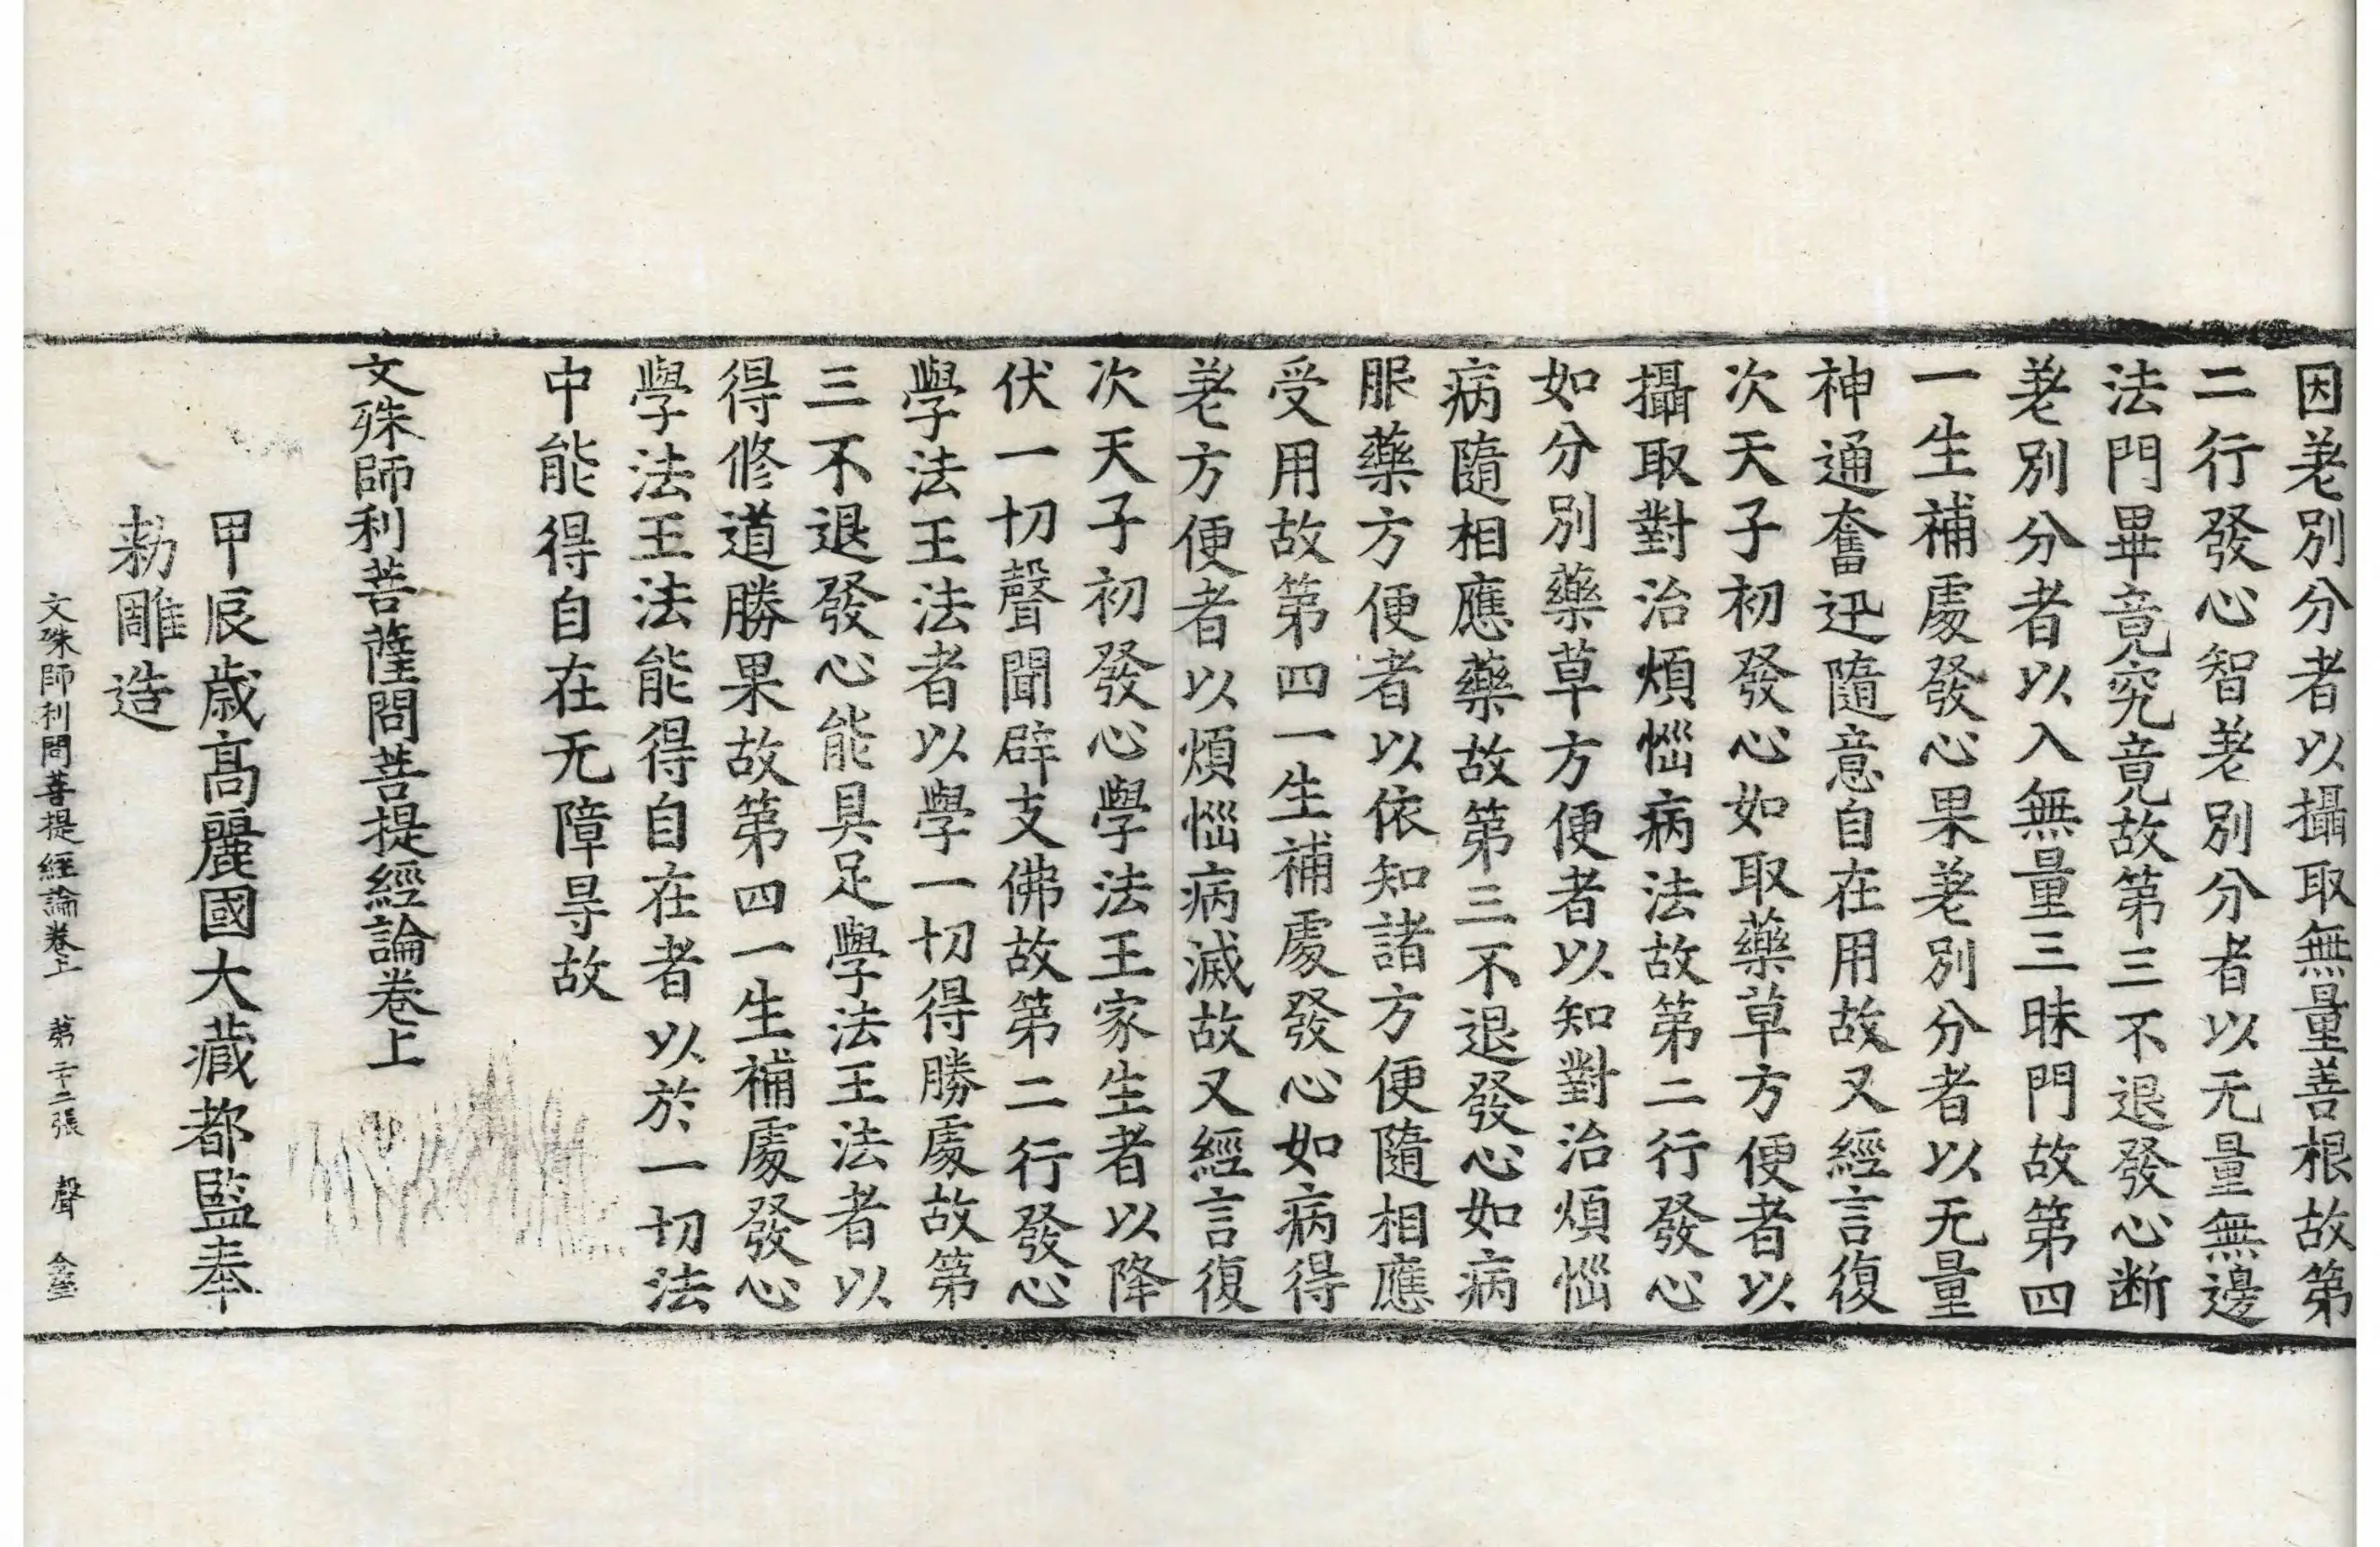 因差別分者以攝取無量善根故第
二行發心智差別分者以无量無邊
法門畢竟究竟故第三不退發心断
差別分者以入無量三昧門故第四
一生補處發心果差別分者以无量
神通奮迅隨意自在用故又經言復
次天子初發心如取藥草方便者以
攝取對治煩惱病法故第二行發心
如分別藥草方便者以知對治煩惱
病隨相應藥故第三不退發心如病
服藥方便者以依知諸方便隨相應
受用故第四一生補處發心如病得
差方便者以煩惱病滅故又經言復
次天子初發心學法王家生者以降
伏一切聲聞辟支佛故第二行發心
學法王法者以學一切得勝處故第
三不退發心能具足學法王法者以
得修道勝果故第四一生補處發心
學法王法能得自在者以於一切法
中能得自在无障㝵故
文殊師利菩薩問菩提經論卷上
甲辰歳高麗國大藏都監奉
勑雕造
文殊師利問菩提經論卷上 第二十二張 聲